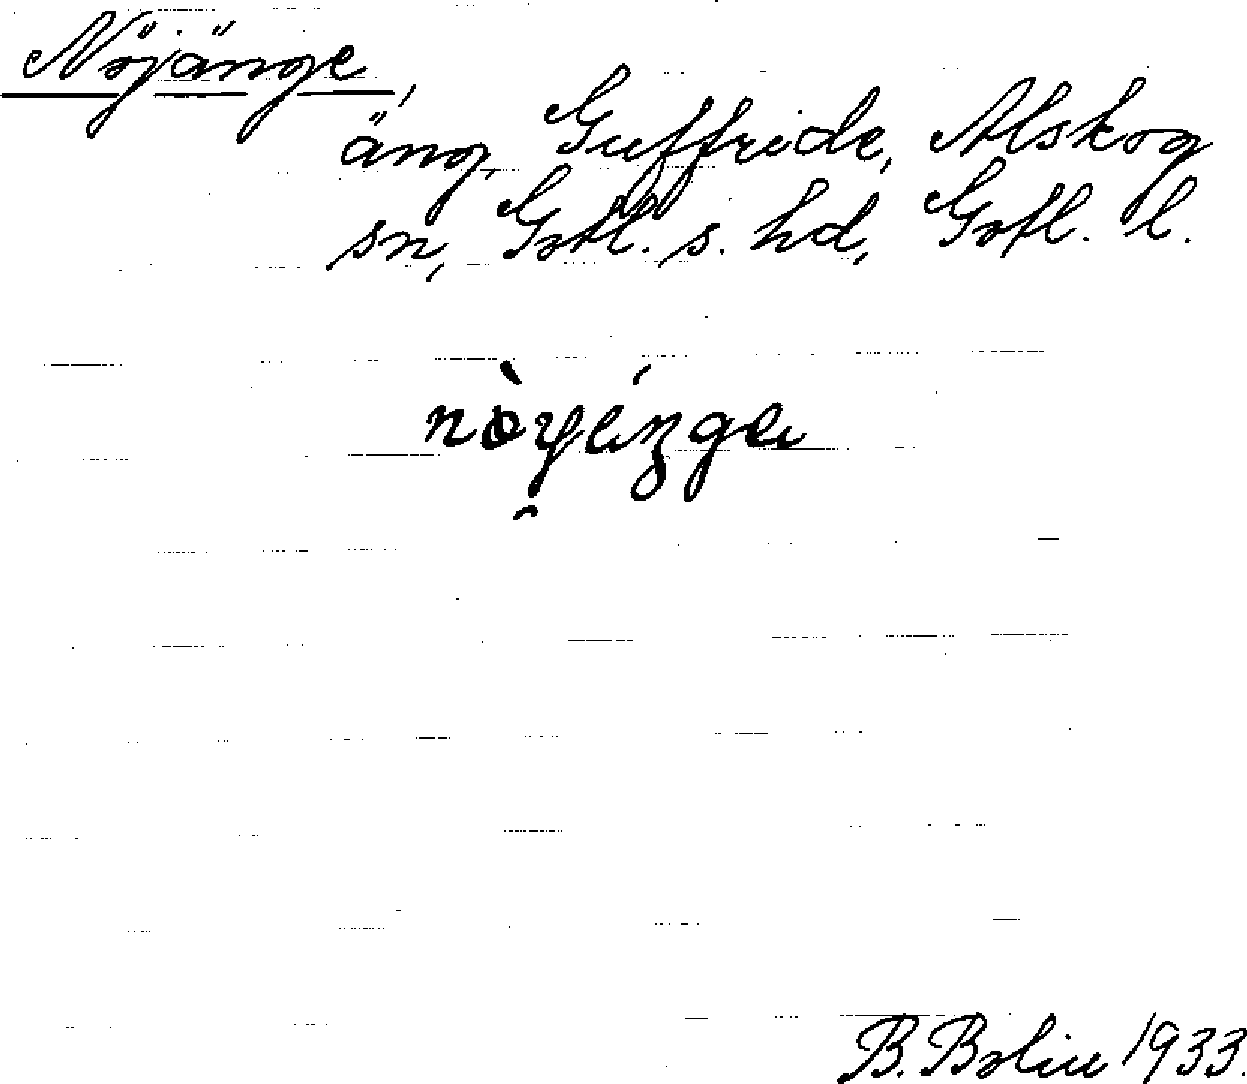 Nöjänge,
äng, Guffride, Alskog
sn, Gotl. s. hd, Gotl. l.
nòyénge
B. Bolin 1933.